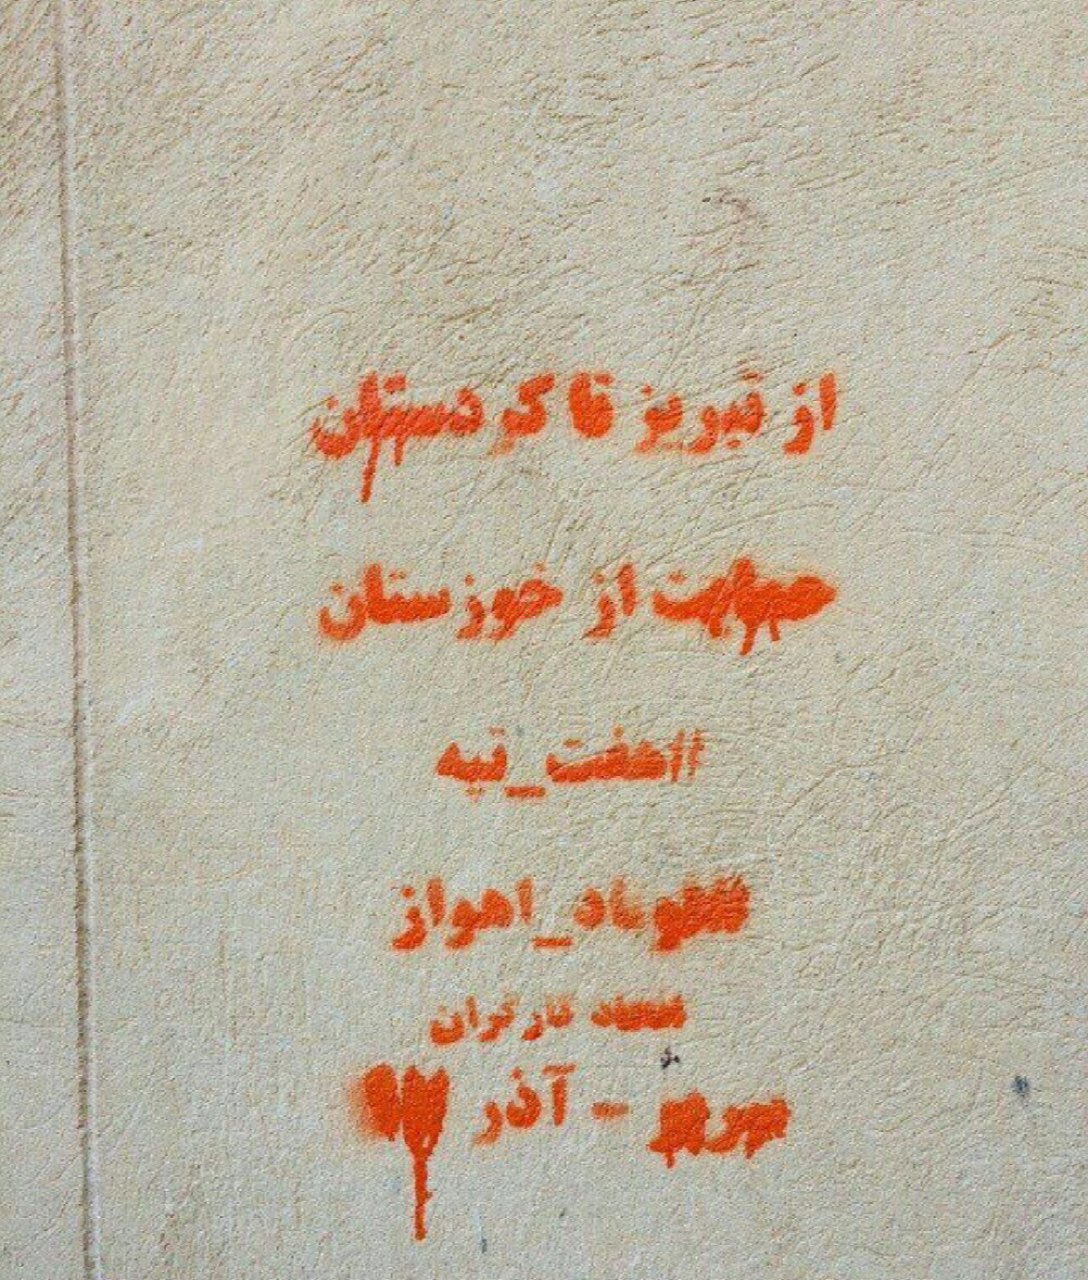 از تبریز تا کردستان
حمایت از خوزستان
#هفت_تپه
#فولاد_اهواز
کارگران
- آذر ۹۷